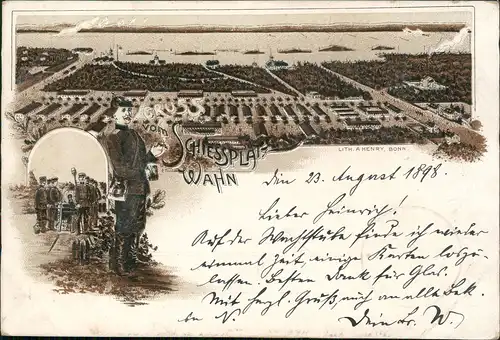 GRUSS
VOM
SCHIESSPLATZ
WAHN
LITH. A. HENRY, BONN.
den 23. August 1898.
Lieber Heinrich!
Auf der Wachtstube finde ich wieder
einmal Zeit, einige Karten loszu-
lassen. Besten Dank für
Mit hrzl. Gruß, auch an alle Bek.
Dein Br. W.